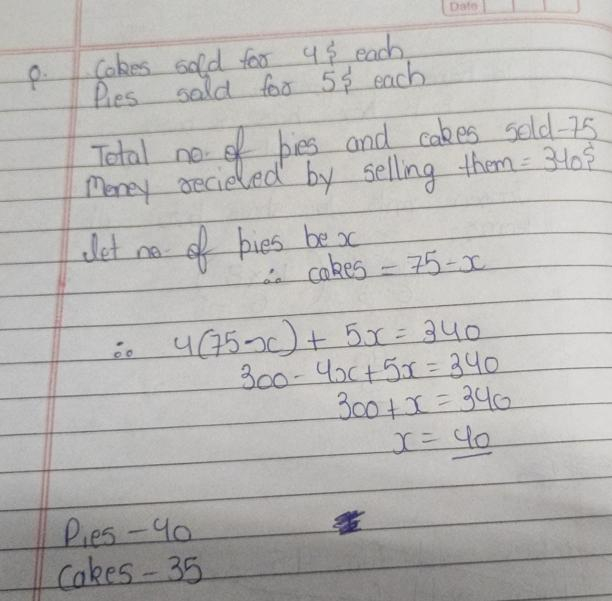 Date
Q. Cakes sold for 4$ each
Pies sold for 5$ each
Total no. of pies and cakes sold - 75
Money recieved by selling them = 340$
Let no. of pies be x
∴ cakes = 75-x
∴ 4(75-x) + 5x = 340
300 - 4x + 5x = 340
300 + x = 340
x = 40
Pies - 40
Cakes - 35